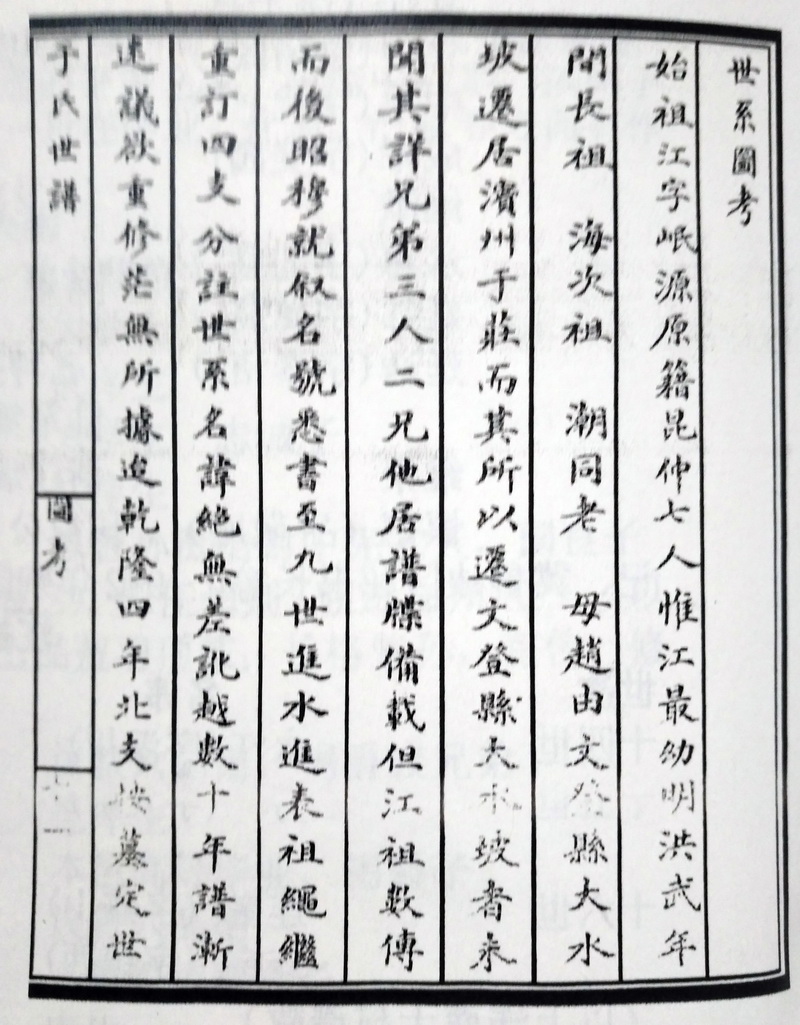 世系圖考
始祖江字岷源原籍昆仲七人惟江最幼明洪武年
間長祖　海次祖　潮同老　母趙由文登縣大水
坡遷居濱州于莊而其所以遷文登縣大水坡者未
聞其詳兄弟三人二兄他居譜牒備載但江祖數傳
而後昭穆就叙名號悉書至九世進水進表祖繩繼
重訂四支分註世系名諱絕無差訛越數十年譜漸
迷議欲重修茫無所據迨乾隆四年北支按墓定世
于氏世譜
圖考